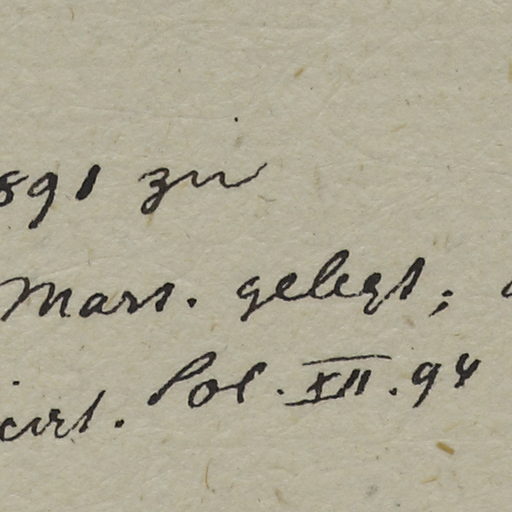 891 zu
Mars. gelegt;
cirt. Pol. XII. 94